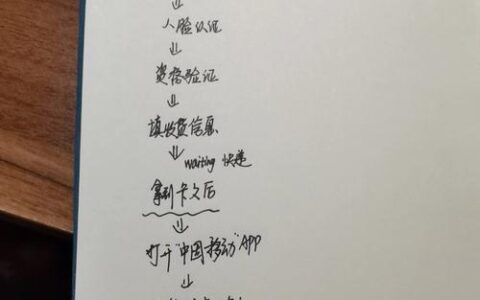 ↓
人脸认证
↓
资格验证
↓
填收货信息
↓ waiting 快递
拿到卡之后
↓
打开“中国移动”APP
↓